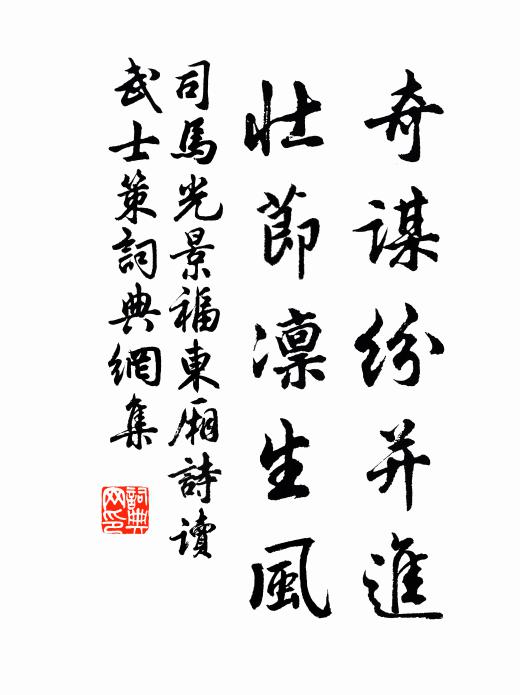 奇謀紛并進
壯節凛生風
司馬光景福東厢詩讀
武士策詞典網集
詞典网印